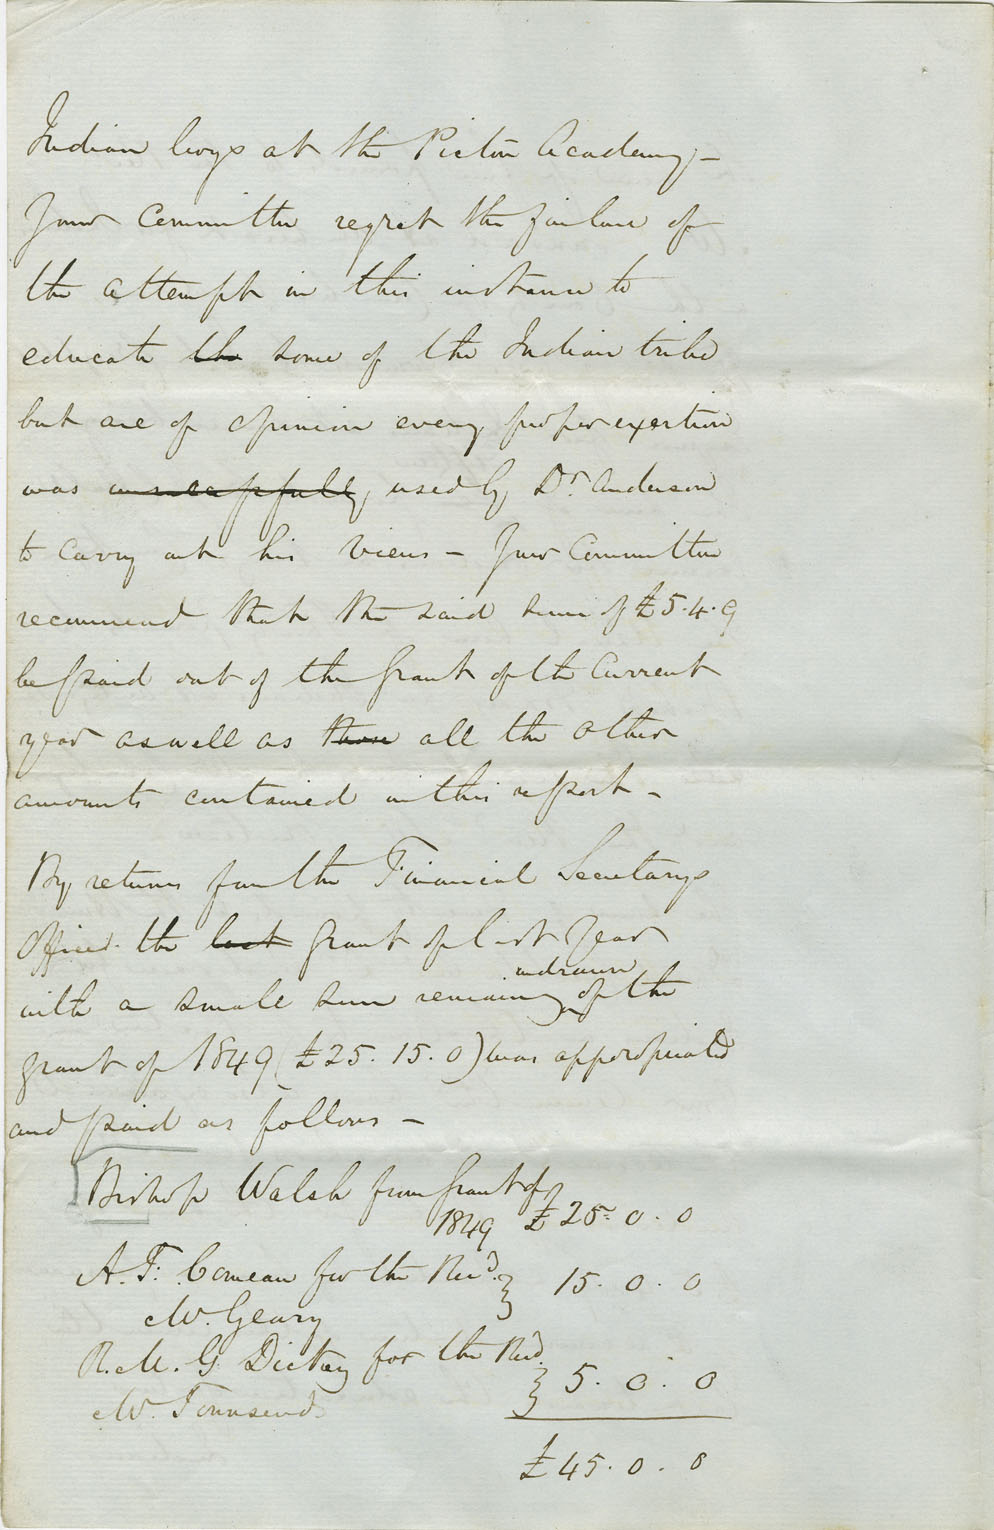 Indian boys at the Picton Academy –
Your Committee regret the failure of
the attempt in this instance to
educate the some of the Indian tribe
but are of opinion every proper exertion
was unsuccessfully, used by Dr. Anderson
to carry out his views – Your Committee
recommend that the said sum of £5.4.9
be paid out of the Grant of the Current
year as well as those all the other
amounts contained in this report –
By returns from the Financial Secretarys
Office the last Grant of last year
undrawn
with a small sum remaining of the
grant of 1849 (£25.15.0) was appropriated
and paid as follows –
Bishop Walsh from Grant of
1849 £25.0.0
A. F. Comeau for the Revd. } 15.0.0
Mr. Geary
R. M. G. Dickey for the Revd. } 5.0.0
Mr. Townsend
£45.0.0